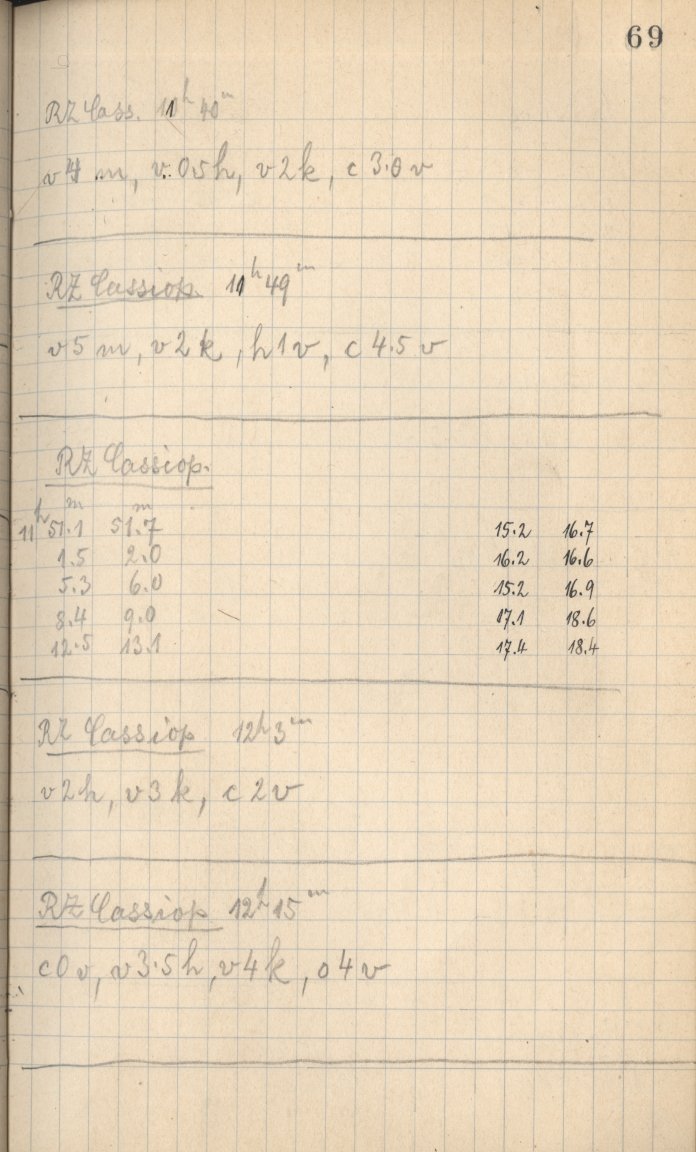 69
RZ Cass. 11h 40m
v 4 m, v 0.5 h, v 2 k, c 3.0 v
RZ Cassiop. 11h 49m
v 5 m, v 2 k, h 1 v, c 4.5 v
RZ Cassiop.
11h 51.1m 51.7m 15.2 16.7
1.5 2.0 16.2 16.6
5.3 6.0 15.2 16.9
8.4 9.0 17.1 18.6
12.5 13.1 17.4 18.4
RZ Cassiop 12h 3m
v 2 h, v 3 k, c 2 v
RZ Cassiop 12h 15m
c 0 v, v 3.5 h, v 4 k, o 4 v